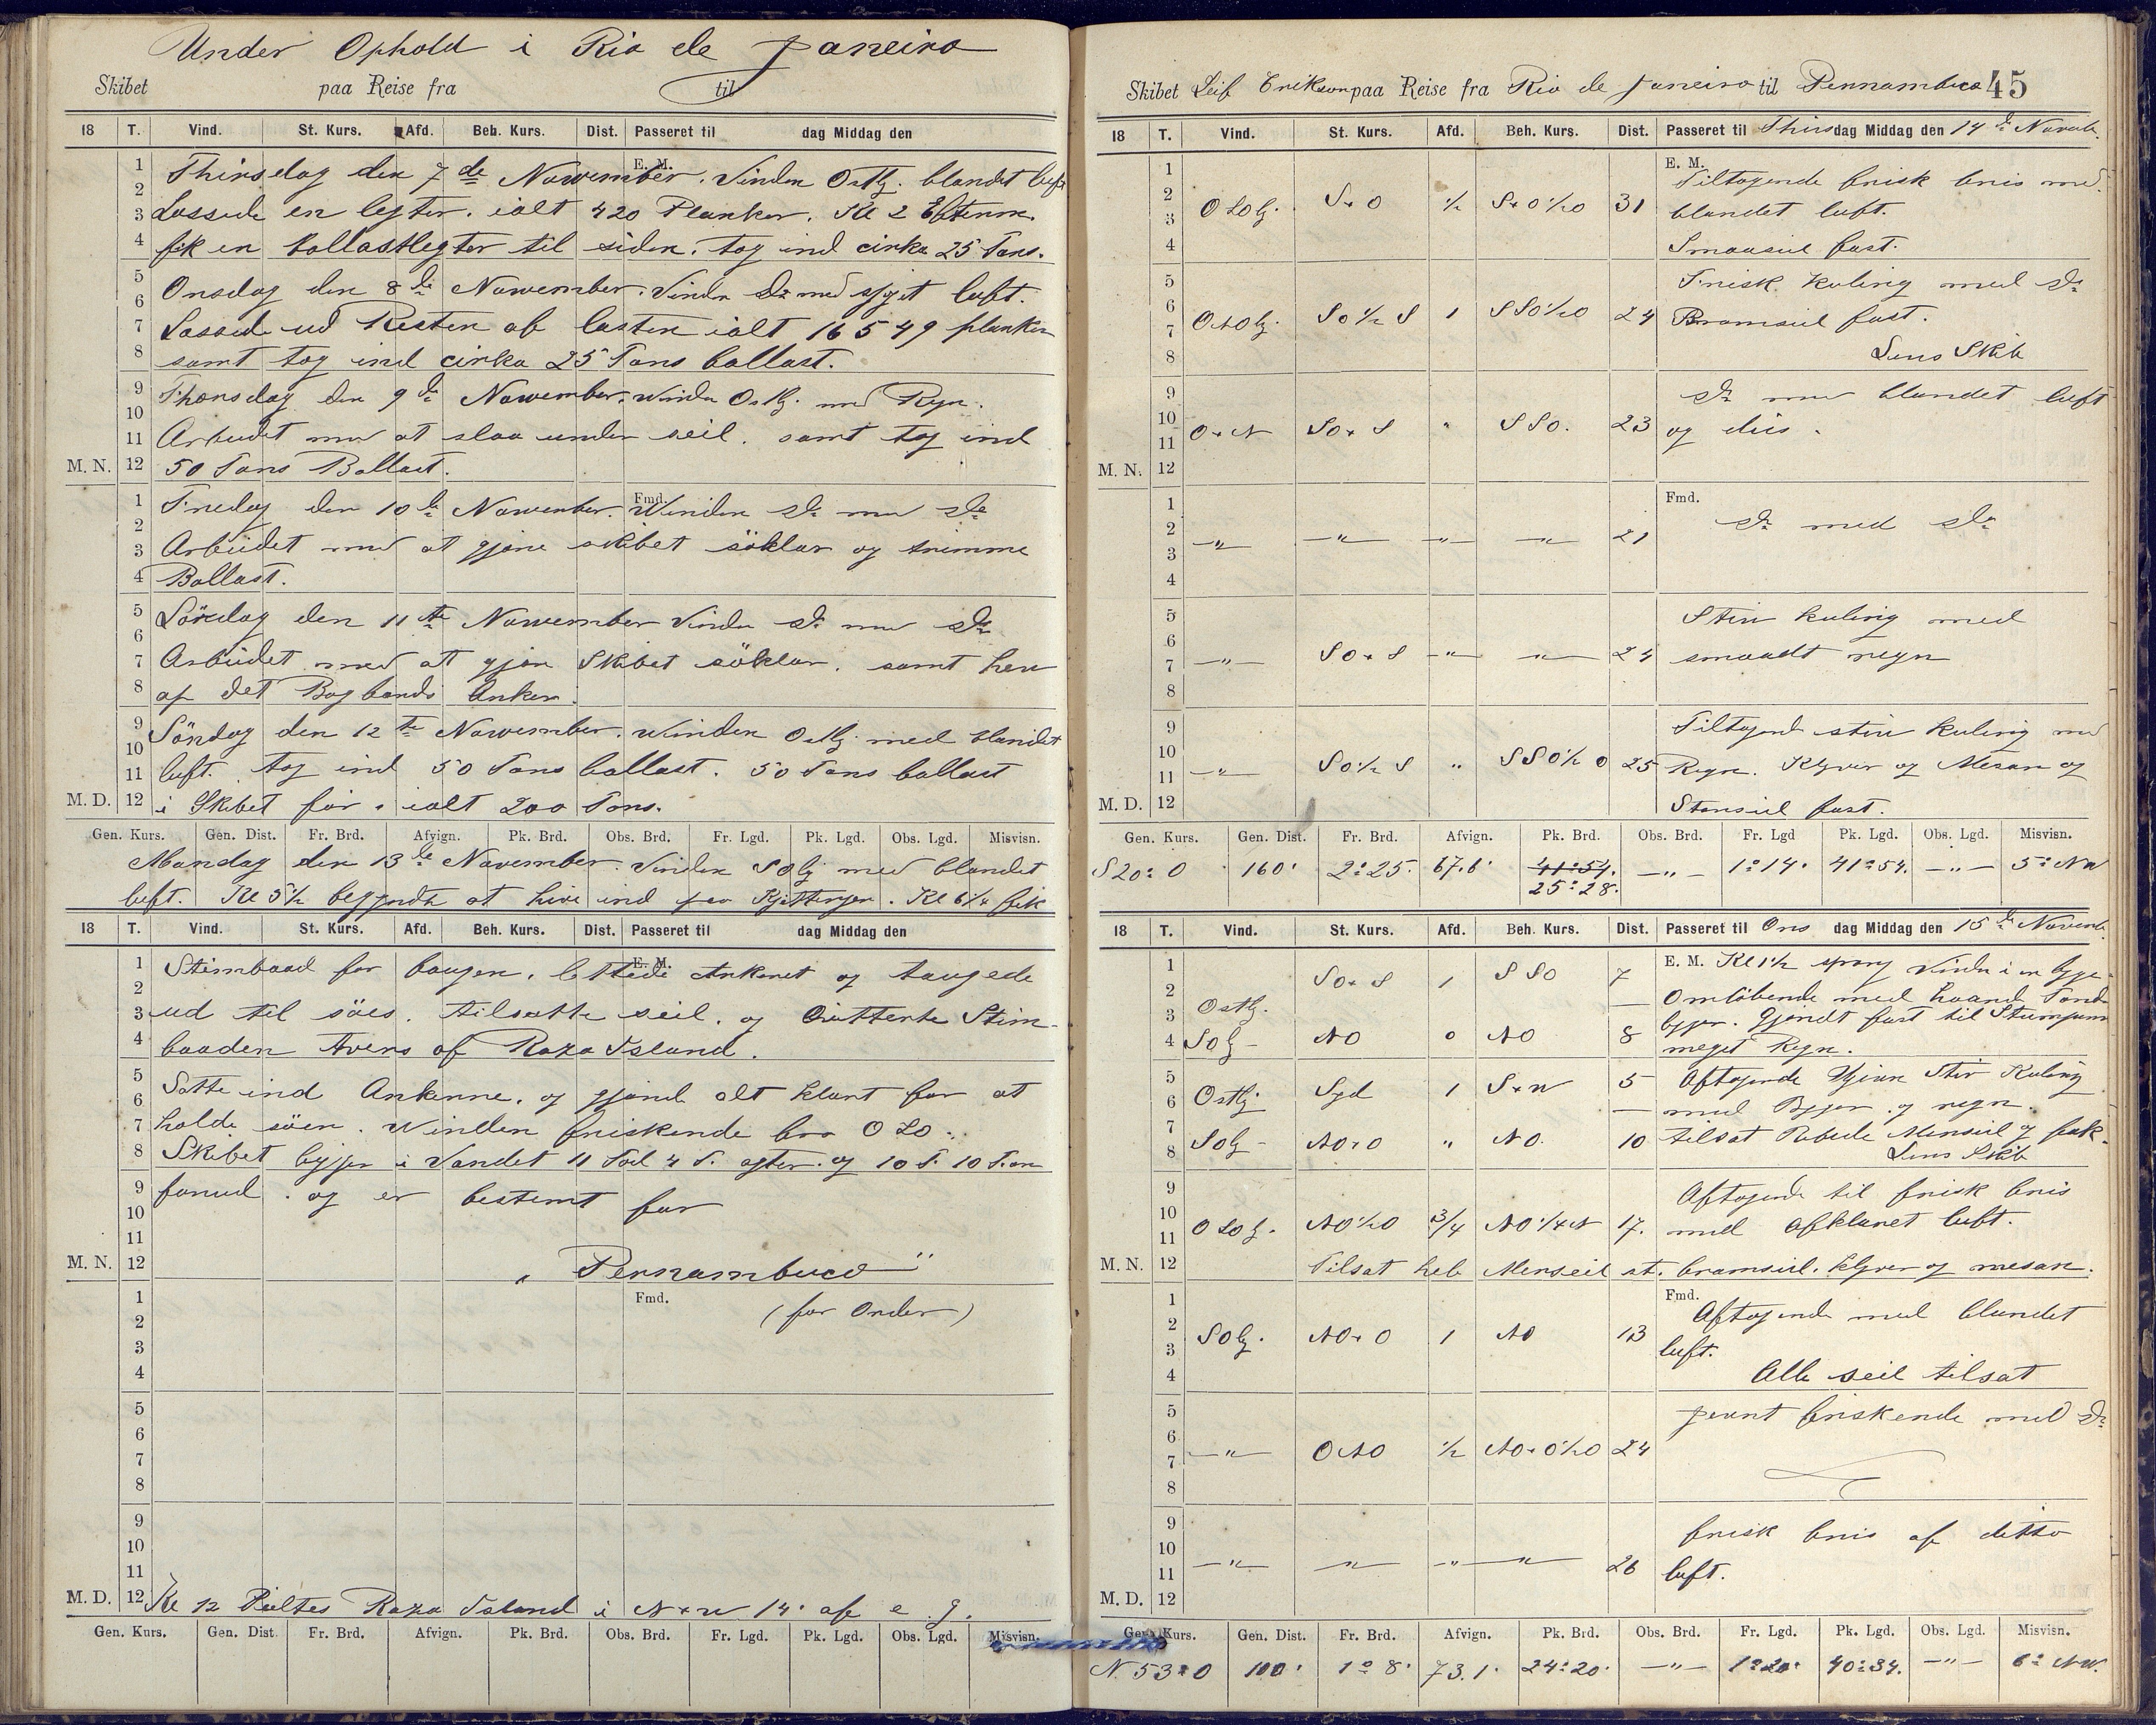 Under Ophold i Rio de Janeiro
Skibet paa Reise fra til
18 T. Vind. St. Kurs. Afd. Beh. Kurs. Dist. Passeret til dag Middag den
E. M.
1 Thirsdag den 7de Nowember. Vinden Ostlg. blandet luft
2
3 Lossede en legter. ialt 420 Planker. Kl 2 Efterm.
4 fik en ballastlegter til siden. tog ind cirka 25 Tons.
5 Onsdag den 8de Nowember. Vinden do med sjyet luft.
6
7 Lossede ud Resten af lasten ialt 16549 planker
8 samt tog ind cirka 25 Tons ballast.
9 Thorsdag den 9de Nowember. winden Ostlg. med Regn.
10
11 Arbeidet med at slaa under seil. samt tog ind
M. N. 12 50 Tons Ballast.
Fmd.
1 Fredag den 10de Nowember. Winden do med do
2
3 Arbeidet med at gjøre skibet söklar og trimme
4 Ballast.
5 Lördag den 11te Nowember Vinden do med do
6
7 Arbeidet med at gjøre Skibet söklar. samt hev
8 op det Bagbords Anker.
9 Söndag den 12te Nowember. winden Ostlg. med blandet
10
11 luft. tog ind 50 Tons ballast. 50 Tons ballast
M. D. 12 i Skibet för. ialt 200 Tons.
Gen. Kurs. Gen. Dist. Fr. Brd. Afvign. Pk. Brd. Obs. Brd. Fr. Lgd. Pk. Lgd. Obs. Lgd. Misvisn.
Mandag den 13de November. Vinden SOlg med blandet
luft. Kl 5½ begyndte at hive ind paa Kjettingen. Kl 6¼ fik
18 T. Vind. St. Kurs. Afd. Beh. Kurs. Dist. Passeret til dag Middag den
E. M.
1 Stimbaad for baugen. lettede Ankeret og baugsede
2
3 ud til söes. tilsatte seil. og Quitterte Stim-
4 baaden tvers af Raza Island.
5 Satte ind Ankerne. og gjorde alt klart for at
6
7 holde söen. Winden friskende fra OSO.
8 Skibet ligger i Vandet 11 Fod 4 T. agter. og 10 F. 10 T. om
9 forud. og er bestemt for
10
11
M. N. 12 "Pernambuco"
Fmd.
1 (for Order)
2
3
4
5
6
7
8
9
10
11
M. D. 12 Kl 12 Peiltes Raza Island i N×W 14' af e. g.
Gen. Kurs. Gen. Dist. Fr. Brd. Afvign. Pk. Brd. Obs. Brd. Fr. Lgd. Pk. Lgd. Obs. Lgd. Misvisn.
Skibet Leif Erikson paa Reise fra Rio de Janeiro til Pernambuco 45
18 T. Vind. St. Kurs. Afd. Beh. Kurs. Dist. Passeret til Thirsdag Middag den 14de Novemb.
E. M.
1 Tiltagende frisk bris med
2 OSOlg. S×O ½ S×O½O 31 blandet luft.
3
4 Smaaseil fast.
5 Frisk Kuling med do
6
7 ONOlg. SO½S 1 SSO½O 24 Bramseil fast.
8 Lens Skib
9 do med blandet luft
10
11 O×N SO×S " SSO. 23 og dis.
M. N. 12
Fmd.
1
2 do med do
3 —"— —"— —"— —"— 21
4
5 Stiv kuling med
6
7 —"— SO×S —"— —"— 24 smaadt regn
8
9 Tiltagende stiv kuling med
10
11 —"— SO½S " SSO½O 25 Regn. Klyver og Mesan og
M. D. 12 Storseil fast.
Gen. Kurs. Gen. Dist. Fr. Brd. Afvign. Pk. Brd. Obs. Brd. Fr. Lgd Pk. Lgd. Obs. Lgd. Misvisn.
S20°O 160' 2°25' 67.6' 41°54' —"— 1°14' 41°54' —"— 5°NW
25°28'
18 T. Vind. St. Kurs. Afd. Beh. Kurs. Dist. Passeret til Onsdag Middag den 15de Novemb.
1 SO×S 1 SSO 7 E. M. Kl 1½ sprang Vinden i en byge
2 Omlöbende med haard
3 Ostlg. byger. Gjordt fast til
4 SOlg — NO " NO 8 meget Regn.
5 Ostlg. Syd 1 S×W 5 Aftagende Stiv Kuling
6 med Byger og regn.
7 Tilsat Rebede Merseil og fok.
8 SOlg — NO×O " NO. 10 Lens Skib
9 Aftagende til frisk bris
10
11 OSOlg. NO½O ¾ NO¼N 17. med afklaret luft.
M. N. 12 Tilsat hele Merseil st. bramseil. klyver og mesan.
Fmd.
1 Aftagende med blandet
2 SOlg. NO×O 1 NO 13 luft.
3
4 Alle seil tilsat
5 jevnt friskende med do
6
7 —"— ONO ½ NO×O½O 24
8
9 frisk bris af ditto
10
11 —"— —"— —"— —"— 26 luft.
M. D. 12
Gen. Kurs. Gen. Dist. Fr. Brd. Afvign. Pk. Brd. Obs. Brd. Fr. Lgd. Pk. Lgd. Obs. Lgd. Misvisn.
N53°O 100' 1°8' 73.1' 24°20' —"— 1°20' 40°34' —"— 6°NW.